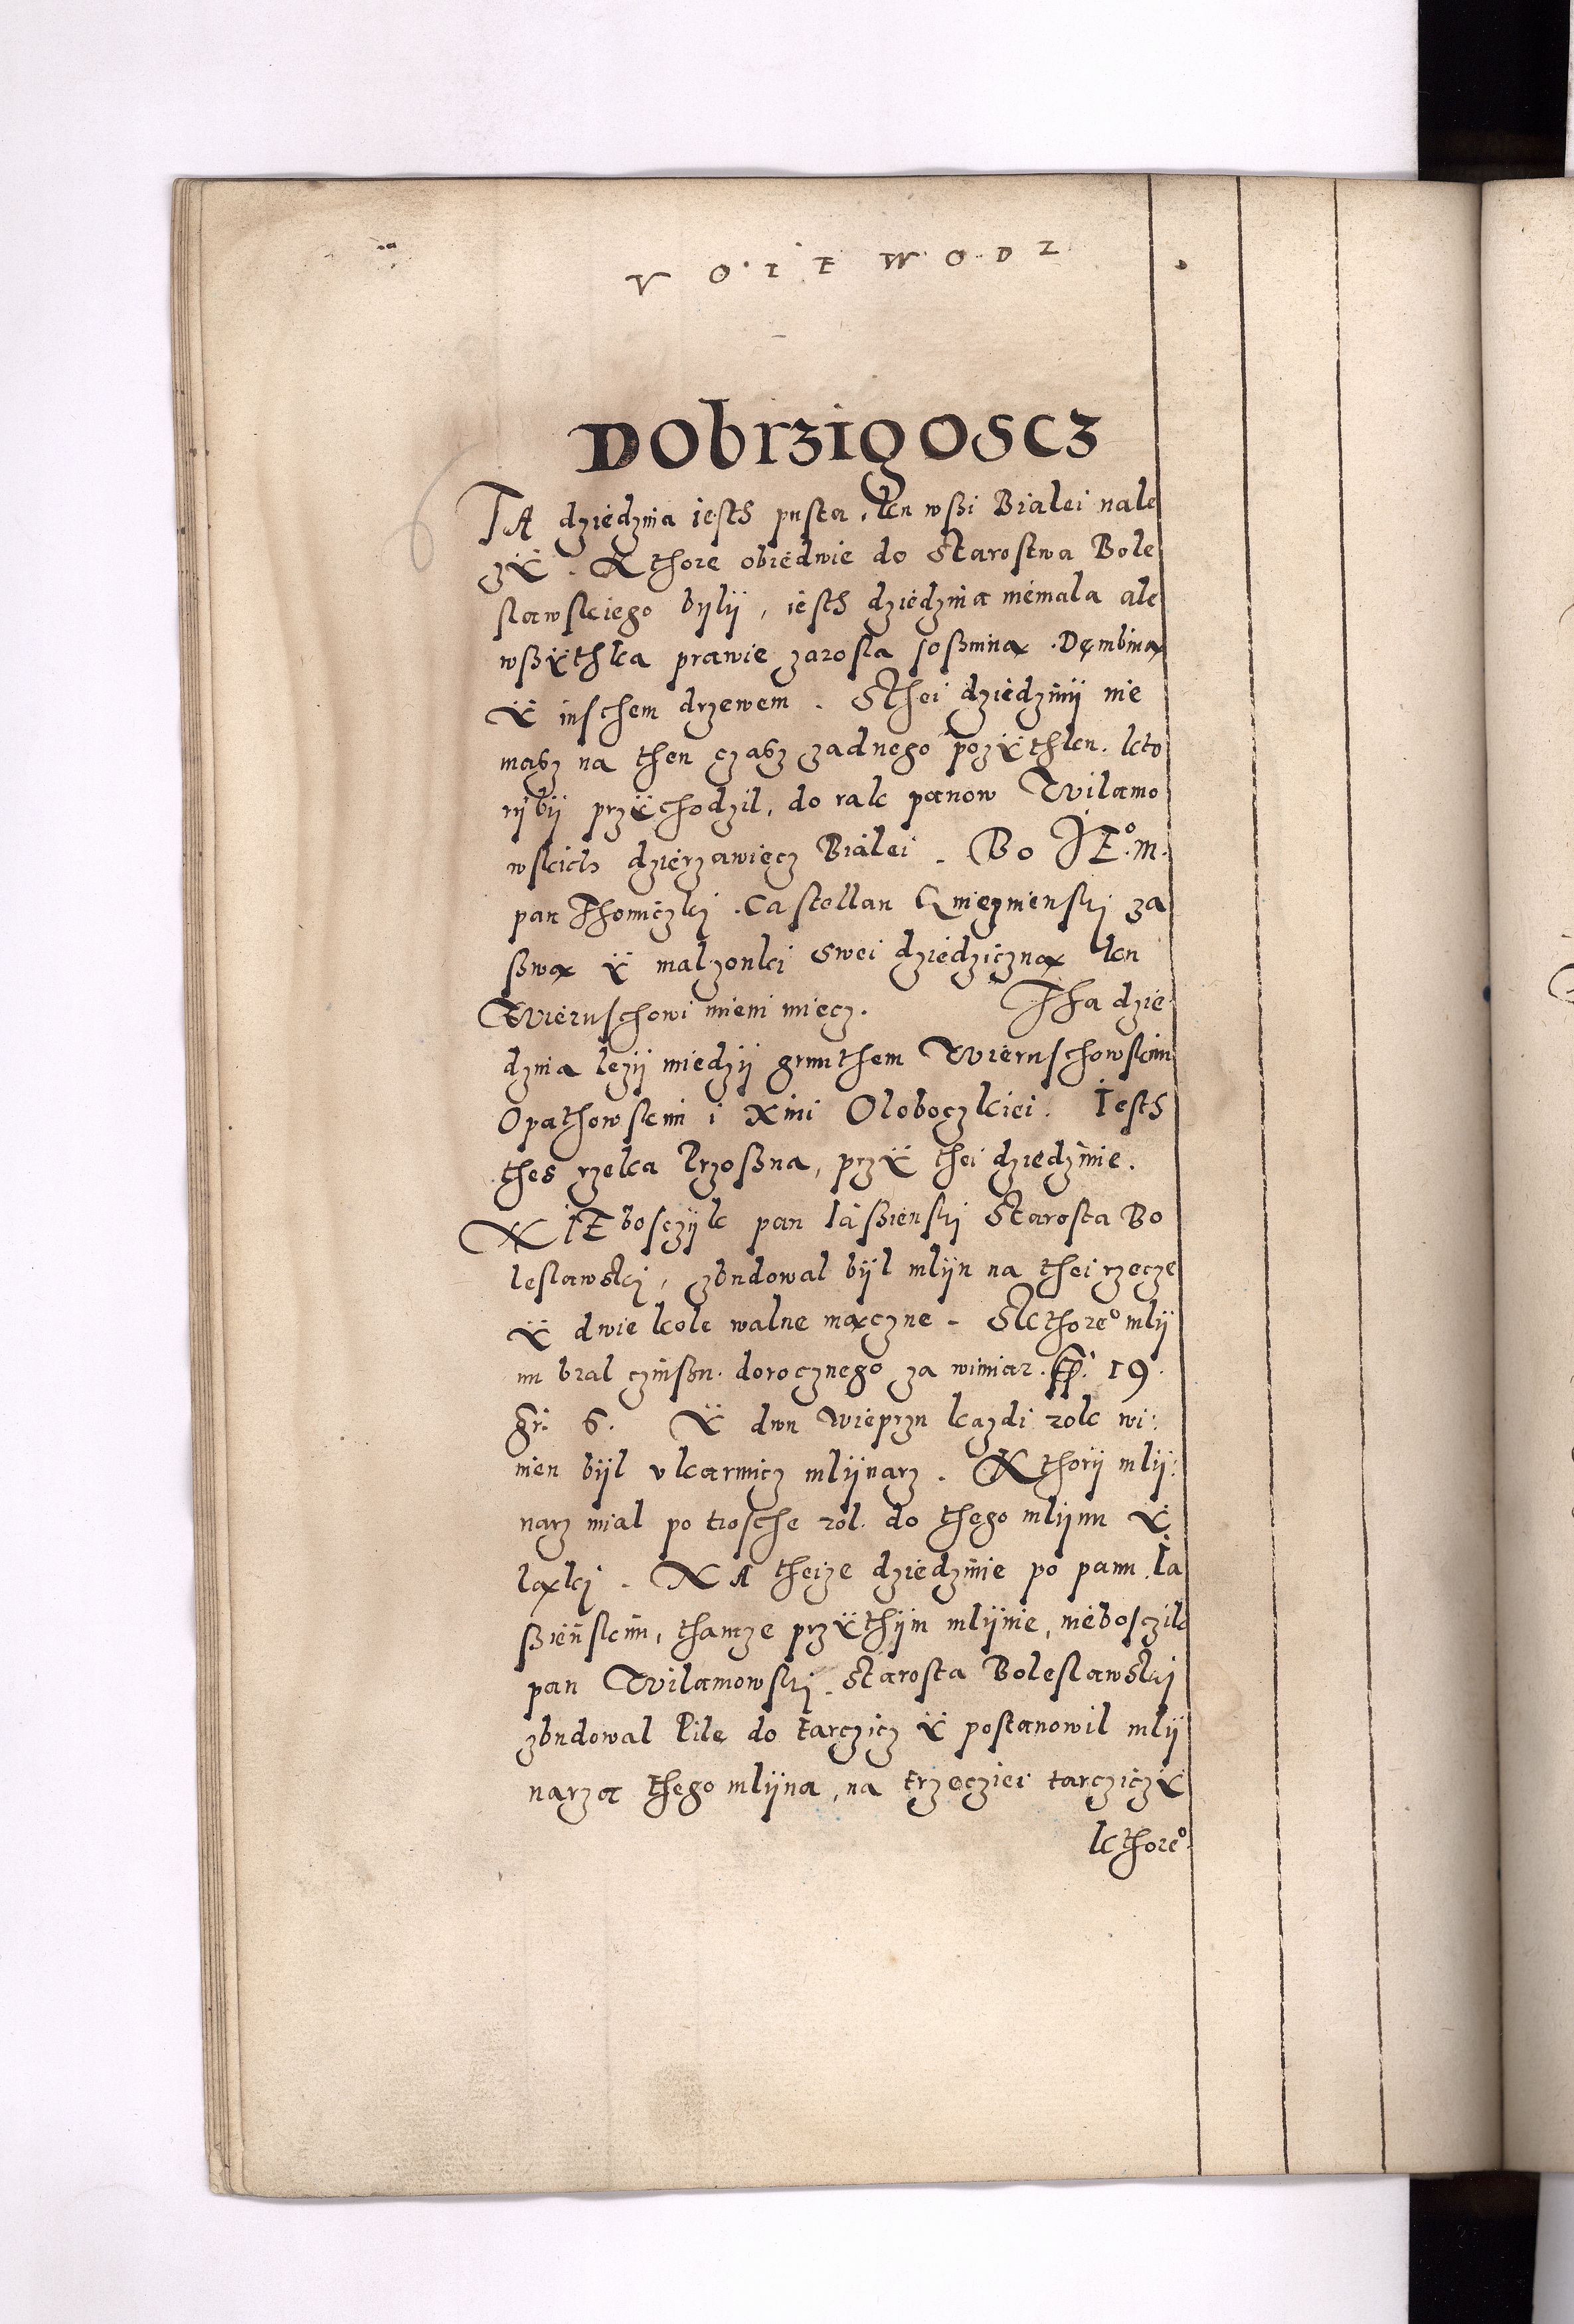 VOIEWODZ
Dobrzigoscz
TA dziedzina iesth pusta, ku wsßi Bialei nale
zÿ. Kthore obiedwie do Starostwa Bole
slawskiego bylÿ, iesth dziedzina niemala ale
wßÿthka prawie zarosla soßnina. Dębina
ÿ inschem drzewem. Sthei dziedzinÿ nie
maßz na then czaßz zadnego pozÿthku. kto
rÿbÿ przÿchodzil, do rak panow Wilamo
wskich dzierzawiecz Bialei. Bo JE.º M.
pan Thomiczki. Castellan Gnieznienski za
ßwa ÿ malzonki swei dziedziczna ku
Wieruschowi mieni miecz. Tha dzie
dzina lezÿ miedzÿ grunthem Wieruschowskim
Opathowskim i Xini Oloboczkiei. Iesth
thes rzeka Przoßna, przÿ thei dziedzinie.
NIEbosczÿk pan Iaßienski Starosta Bo
leslawski, zbudowal bÿl mlÿn na thei rzecze
ÿ dwie kole walne maczne. Skthoreº mlÿ
nu bral czinßu. dorocznego za wimiar. fl. 19.
gr. 6. ÿ dwu wieprzu kazdi rok wi:
nien bÿl vkarmicz mlÿnarz. Kthorÿ mlÿ:
narz mial po trosche rol. do thego mlÿnu ÿ
laki. NA theize dziedzinie po panu Ia
ßienskim, thamze przÿ thÿm mlÿnie, niebosczik
pan Wilamowski. Starosta Boleslawski
zbudowal Pilę do tarczicz ÿ postanowil mlÿ
narza thego mlÿna, na trzecziei tarcziczÿ
kthoreº